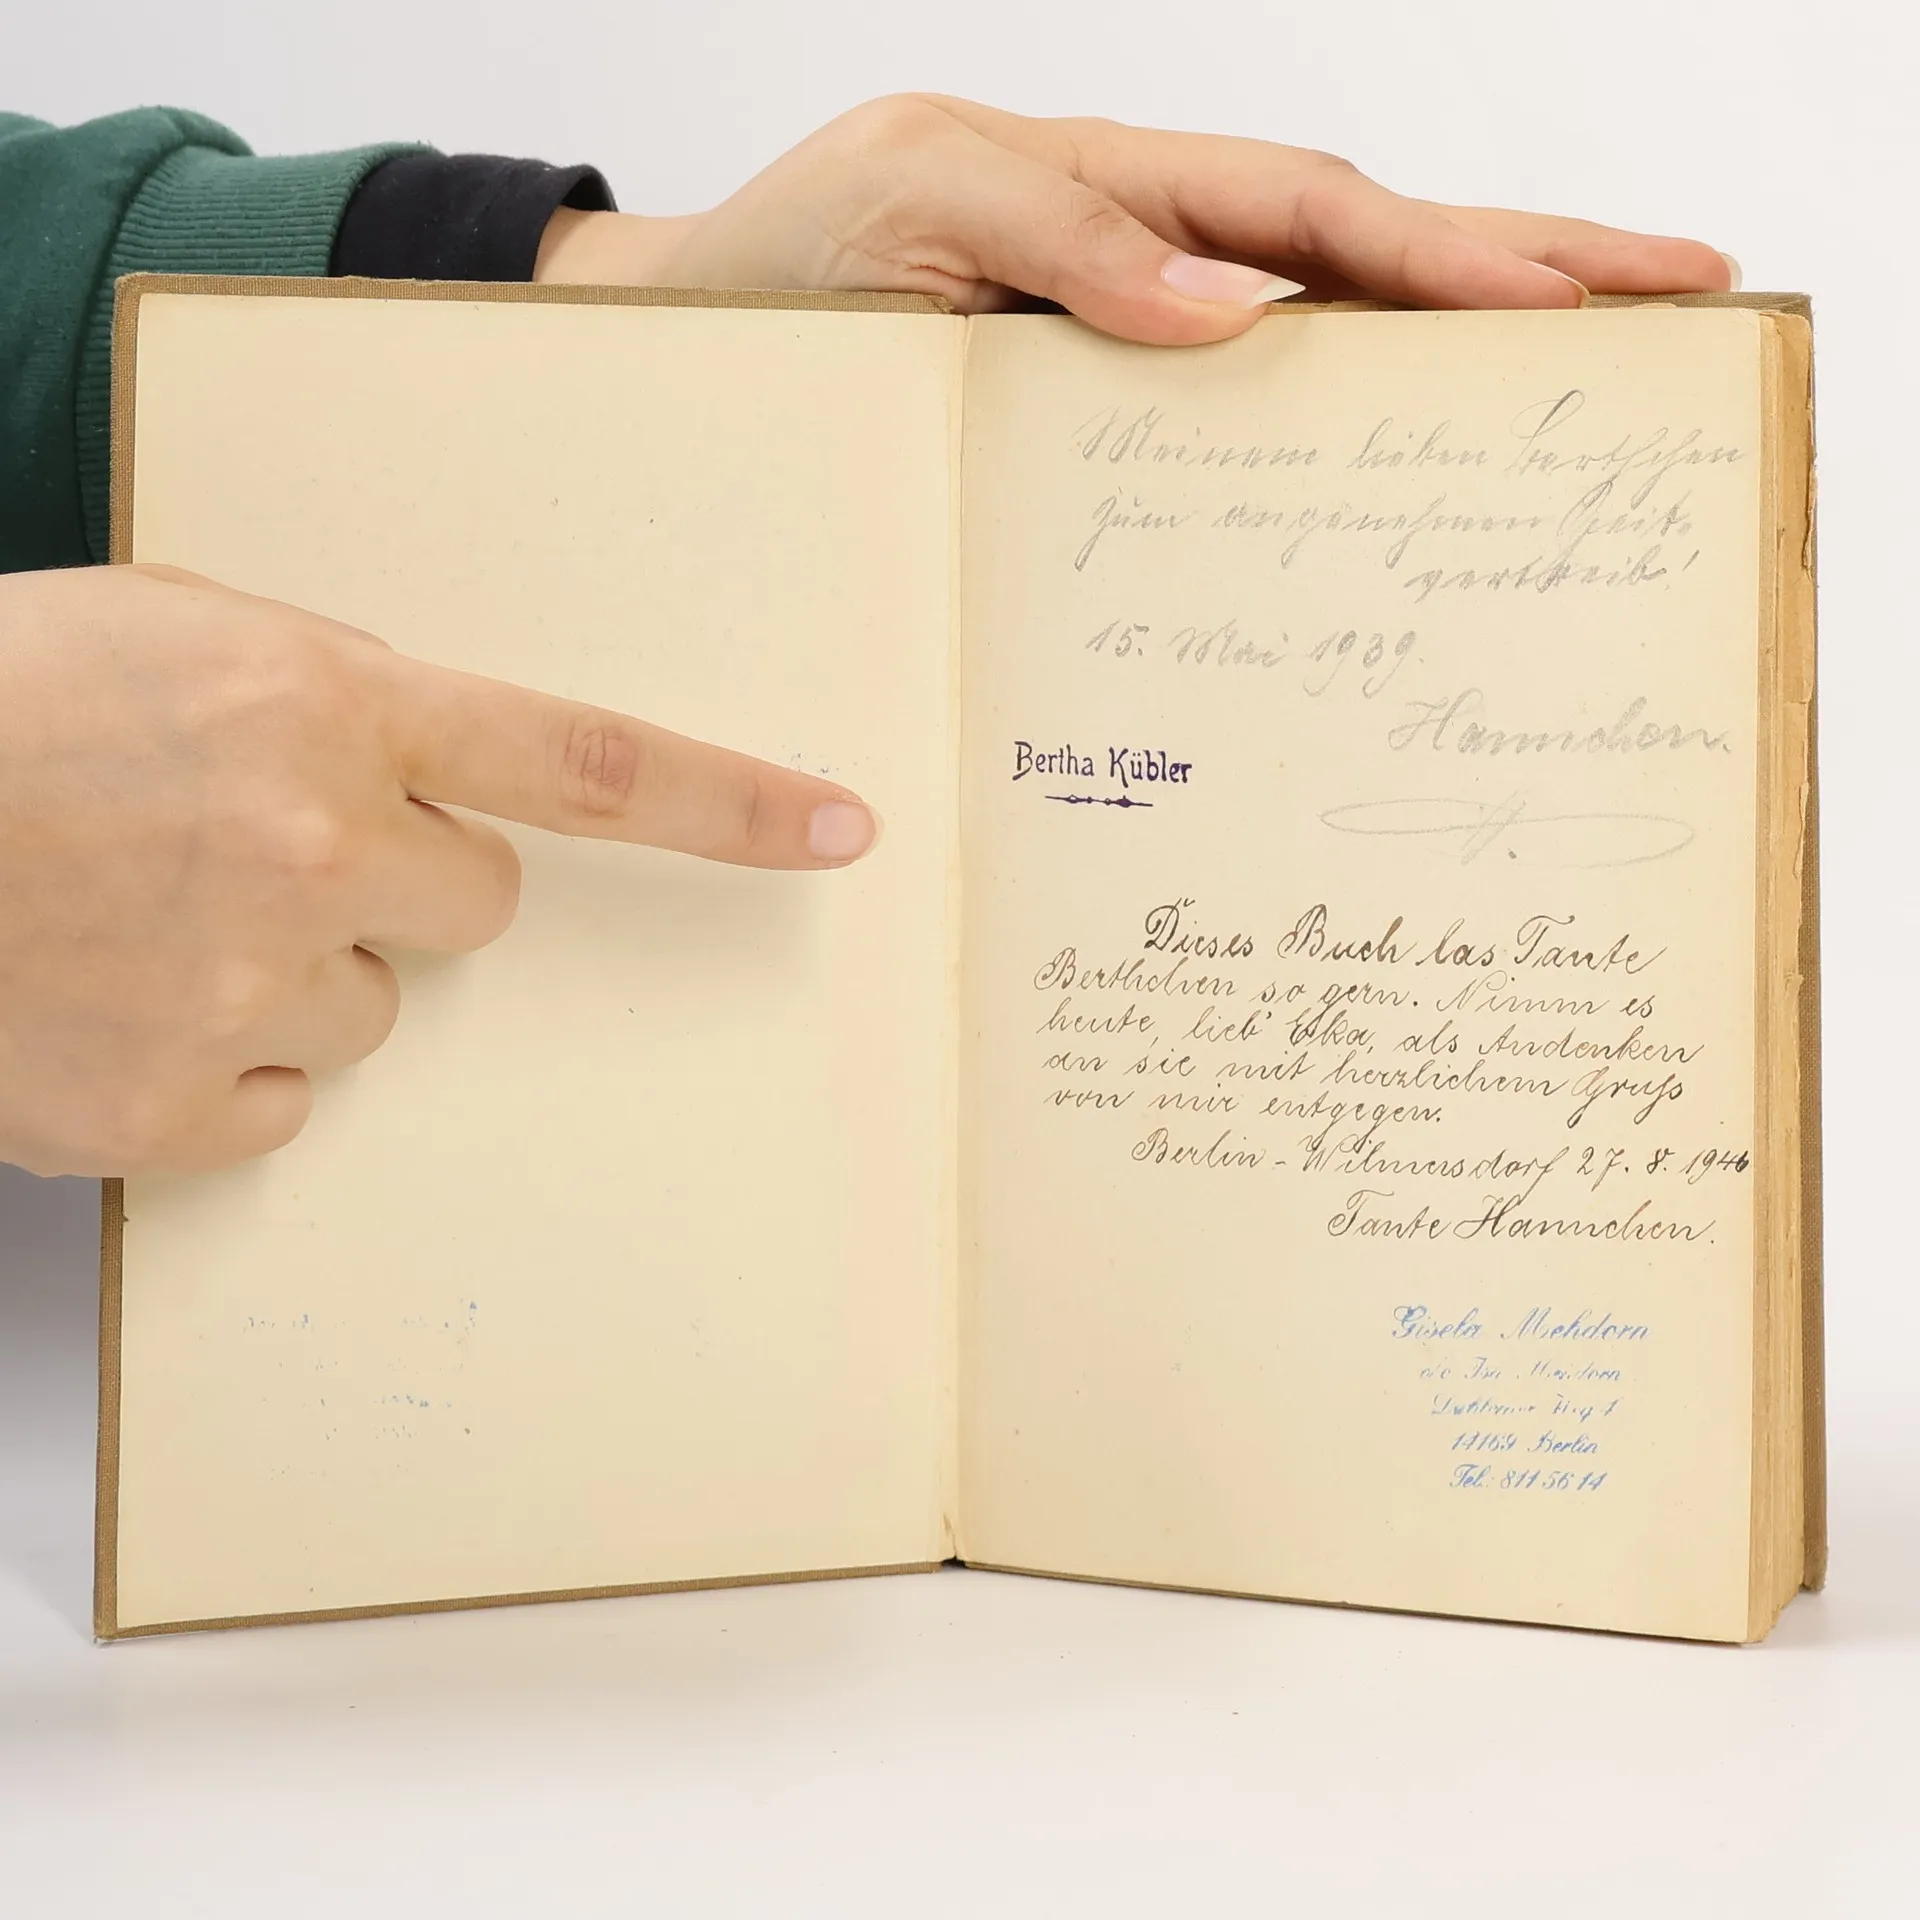 Meinem lieben Berthchen
zum angenehmen Zeit-
vertreib!
15. Mai 1939.
Hannchen.
Bertha Kübler
H.
Dieses Buch las Tante
Berthchen so gern. Nimm es
heute, lieb' Eka, als Andenken
an sie mit herzlichem Gruß
von mir entgegen.
Berlin-Wilmersdorf 27. 8. 1946
Tante Hannchen.
Gisela Mehdorn
c/o Isa
14169 Berlin
Tel.: 811 56 14